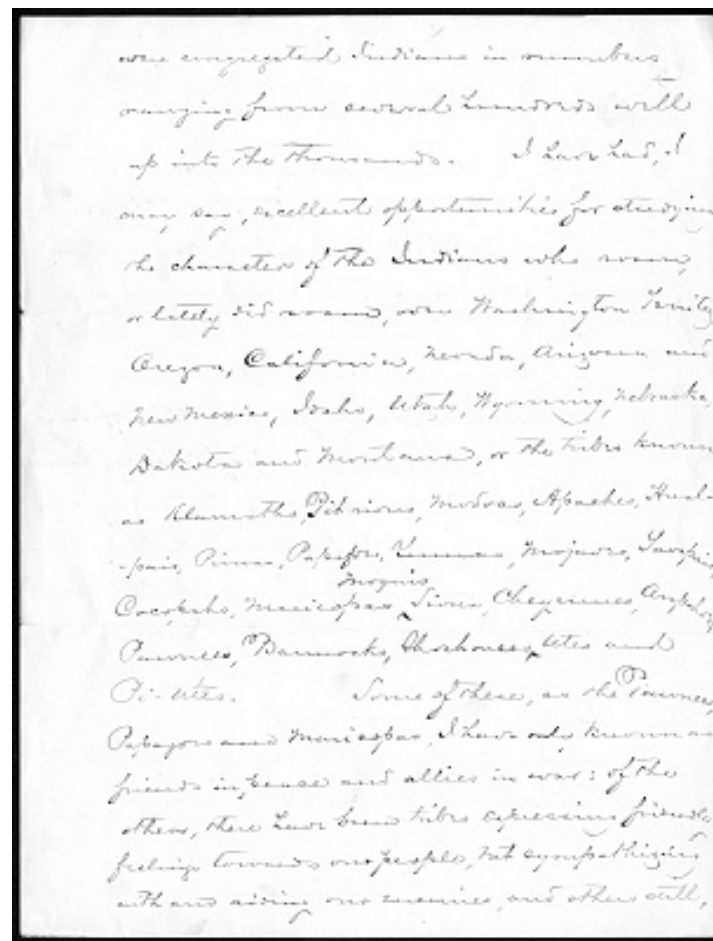 were congregated Indians in numbers
ranging from several hundreds well
up into the thousands. I have had, I
may say, excellent opportunities for studying
the character of the Indians who roam,
or lately did roam, over Washington Ter'ity
Oregon, California, Nevada, Arizona and
New Mexico, Idaho, Utah, Wyoming, Nebraska,
Dakota and Montana, or the tribes known
as Klamaths, Pit rivers, Modocs, Apaches, Hual-
-pais, Pimas, Papagoes, Yumas, Mojaves,
Moquis
Maricopas, Sioux, Cheyennes,
Pawnees, Bannocks, Shoshonees, Utes and
Pi-Utes. Some of these, as the Pawnees,
Papagoes and Maricopas, I have only known as
friends in peace and allies in war: of the
others, there have been tribes expressing friendly
feelings towards our people, but sympathizing
with and aiding our enemies, and others still,